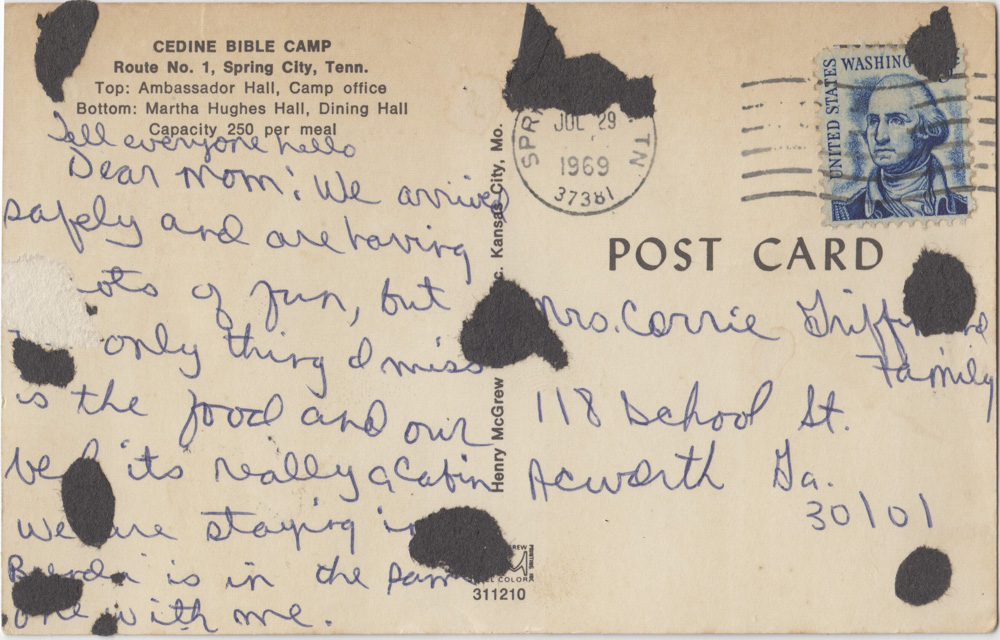 CEDINE BIBLE CAMP
Route No. 1, Spring City, Tenn.
Top: Ambassador Hall, Camp office
Bottom: Martha Hughes Hall, Dining Hall
Capacity 250 per meal
Tell everyone hello
Dear Mom: We arrived
safely and are having
of fun, but
only thing I miss
is the food and our
its really a Cabin
we are staying in
Brenda is in the
one with me.
Henry McGrew Kansas City, Mo.
311210
JUL 29
1969
TN
37381
UNITED STATES
POST CARD
Mrs. Corrie
Family
118 School St.
Acworth Ga.
30101